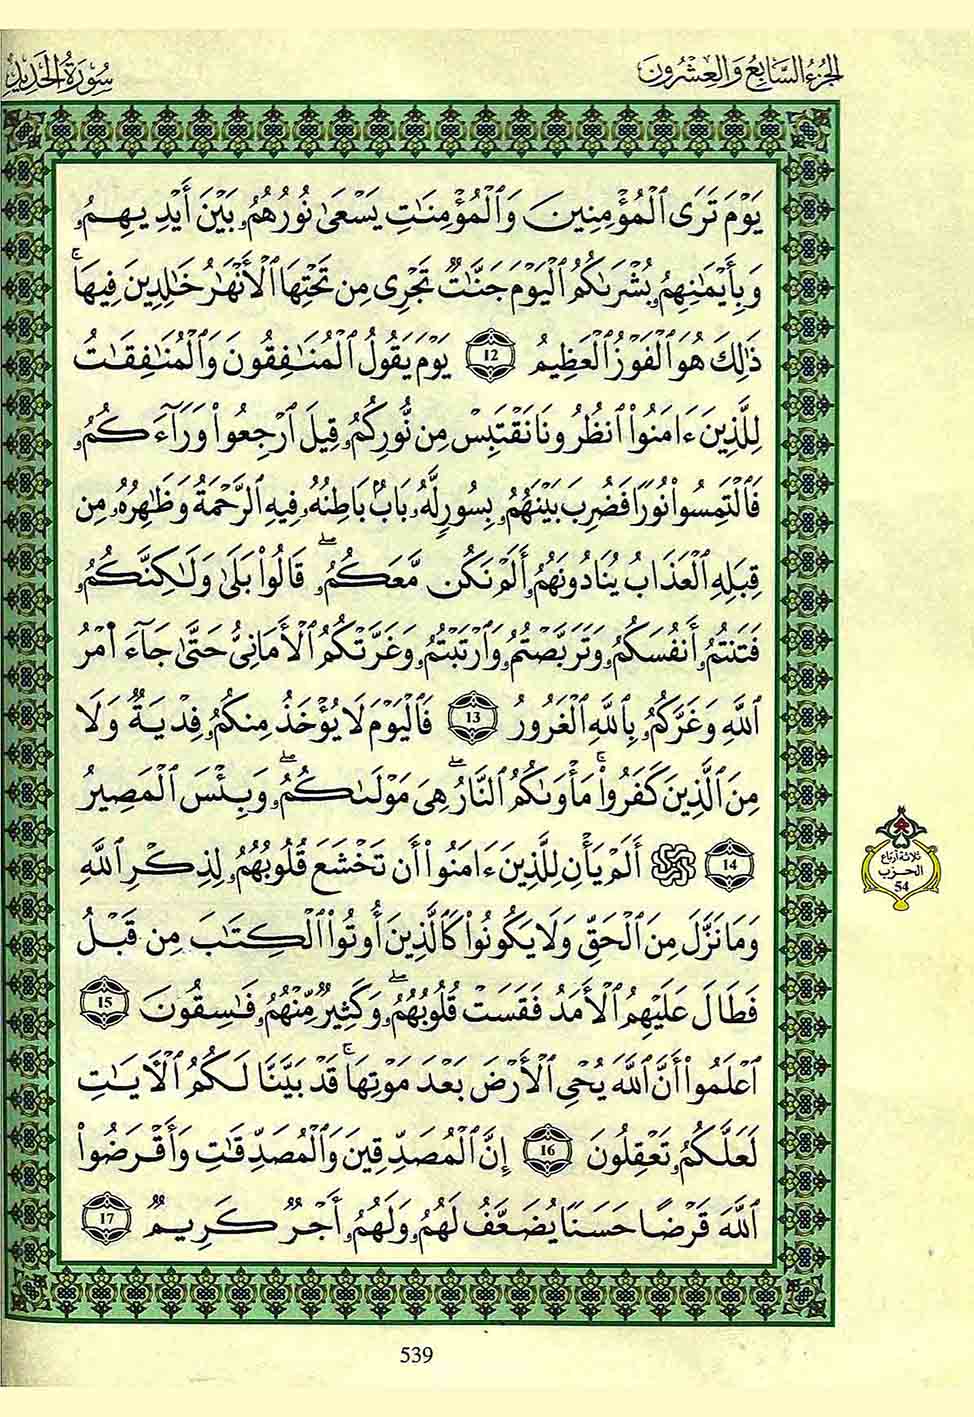 الجزء السابع والعشرون
سورة الحديد
يَوْمَ تَرَى ٱلْمُؤْمِنِينَ وَٱلْمُؤْمِنَٰتِ يَسْعَىٰ نُورُهُمُۥ بَيْنَ أَيْدِيهِمُۥ
وَبِأَيْمَٰنِهِمُۥ بُشْرَىٰكُمُ ٱلْيَوْمَ جَنَّٰتٌ تَجْرِى مِن تَحْتِهَا ٱلْأَنْهَٰرُ خَٰلِدِينَ فِيهَا ۚ
ذَٰلِكَ هُوَ ٱلْفَوْزُ ٱلْعَظِيمُ 12 يَوْمَ يَقُولُ ٱلْمُنَٰفِقُونَ وَٱلْمُنَٰفِقَٰتُ
لِلَّذِينَ ءَامَنُوا۟ ٱنظُرُونَا نَقْتَبِسْ مِن نُّورِكُمُۥ قِيلَ ٱرْجِعُوا۟ وَرَآءَكُمُۥ
فَٱلْتَمِسُوا۟ نُورًا فَضُرِبَ بَيْنَهُمُۥ بِسُورٍ لَّهُۥ بَابٌ بَاطِنُهُۥ فِيهِ ٱلرَّحْمَةُ وَظَٰهِرُهُۥ مِن
قِبَلِهِ ٱلْعَذَابُ يُنَادُونَهُمُۥ أَلَمْ نَكُن مَّعَكُمُۥ ۖ قَالُوا۟ بَلَىٰ وَلَٰكِنَّكُمُۥ
فَتَنتُمُۥ أَنفُسَكُمُۥ وَتَرَبَّصْتُمُۥ وَٱرْتَبْتُمُۥ وَغَرَّتْكُمُ ٱلْأَمَانِىُّ حَتَّىٰ جَآءَ ا۬مْرُ
ٱللَّهِ وَغَرَّكُمُۥ بِٱللَّهِ ٱلْغَرُورُ 13 فَٱلْيَوْمَ لَا يُؤْخَذُ مِنكُمُۥ فِدْيَةٌ وَلَا
مِنَ ٱلَّذِينَ كَفَرُوا۟ ۚ مَأْوَىٰكُمُ ٱلنَّارُ ۖ هِىَ مَوْلَىٰكُمُۥ ۖ وَبِئْسَ ٱلْمَصِيرُ
14 أَلَمْ يَأْنِ لِلَّذِينَ ءَامَنُوا۟ أَن تَخْشَعَ قُلُوبُهُمُۥ لِذِكْرِ ٱللَّهِ
وَمَا نَزَّلَ مِنَ ٱلْحَقِّ وَلَا يَكُونُوا۟ كَٱلَّذِينَ أُوتُوا۟ ٱلْكِتَٰبَ مِن قَبْلُ
فَطَالَ عَلَيْهِمُ ٱلْأَمَدُ فَقَسَتْ قُلُوبُهُمُۥ ۖ وَكَثِيرٌ مِّنْهُمُۥ فَٰسِقُونَ 15
ٱعْلَمُوا۟ أَنَّ ٱللَّهَ يُحْىِ ٱلْأَرْضَ بَعْدَ مَوْتِهَا ۚ قَدْ بَيَّنَّا لَكُمُ ٱلْأٓيَٰتِ
لَعَلَّكُمُۥ تَعْقِلُونَ 16 إِنَّ ٱلْمُصَدِّقِينَ وَٱلْمُصَدِّقَٰتِ وَأَقْرَضُوا۟
ٱللَّهَ قَرْضًا حَسَنًا يُضَعَّفُ لَهُمُۥ وَلَهُمُۥ أَجْرٌ كَرِيمٌ 17
ثلاثة أرباع
الحزب
54
539